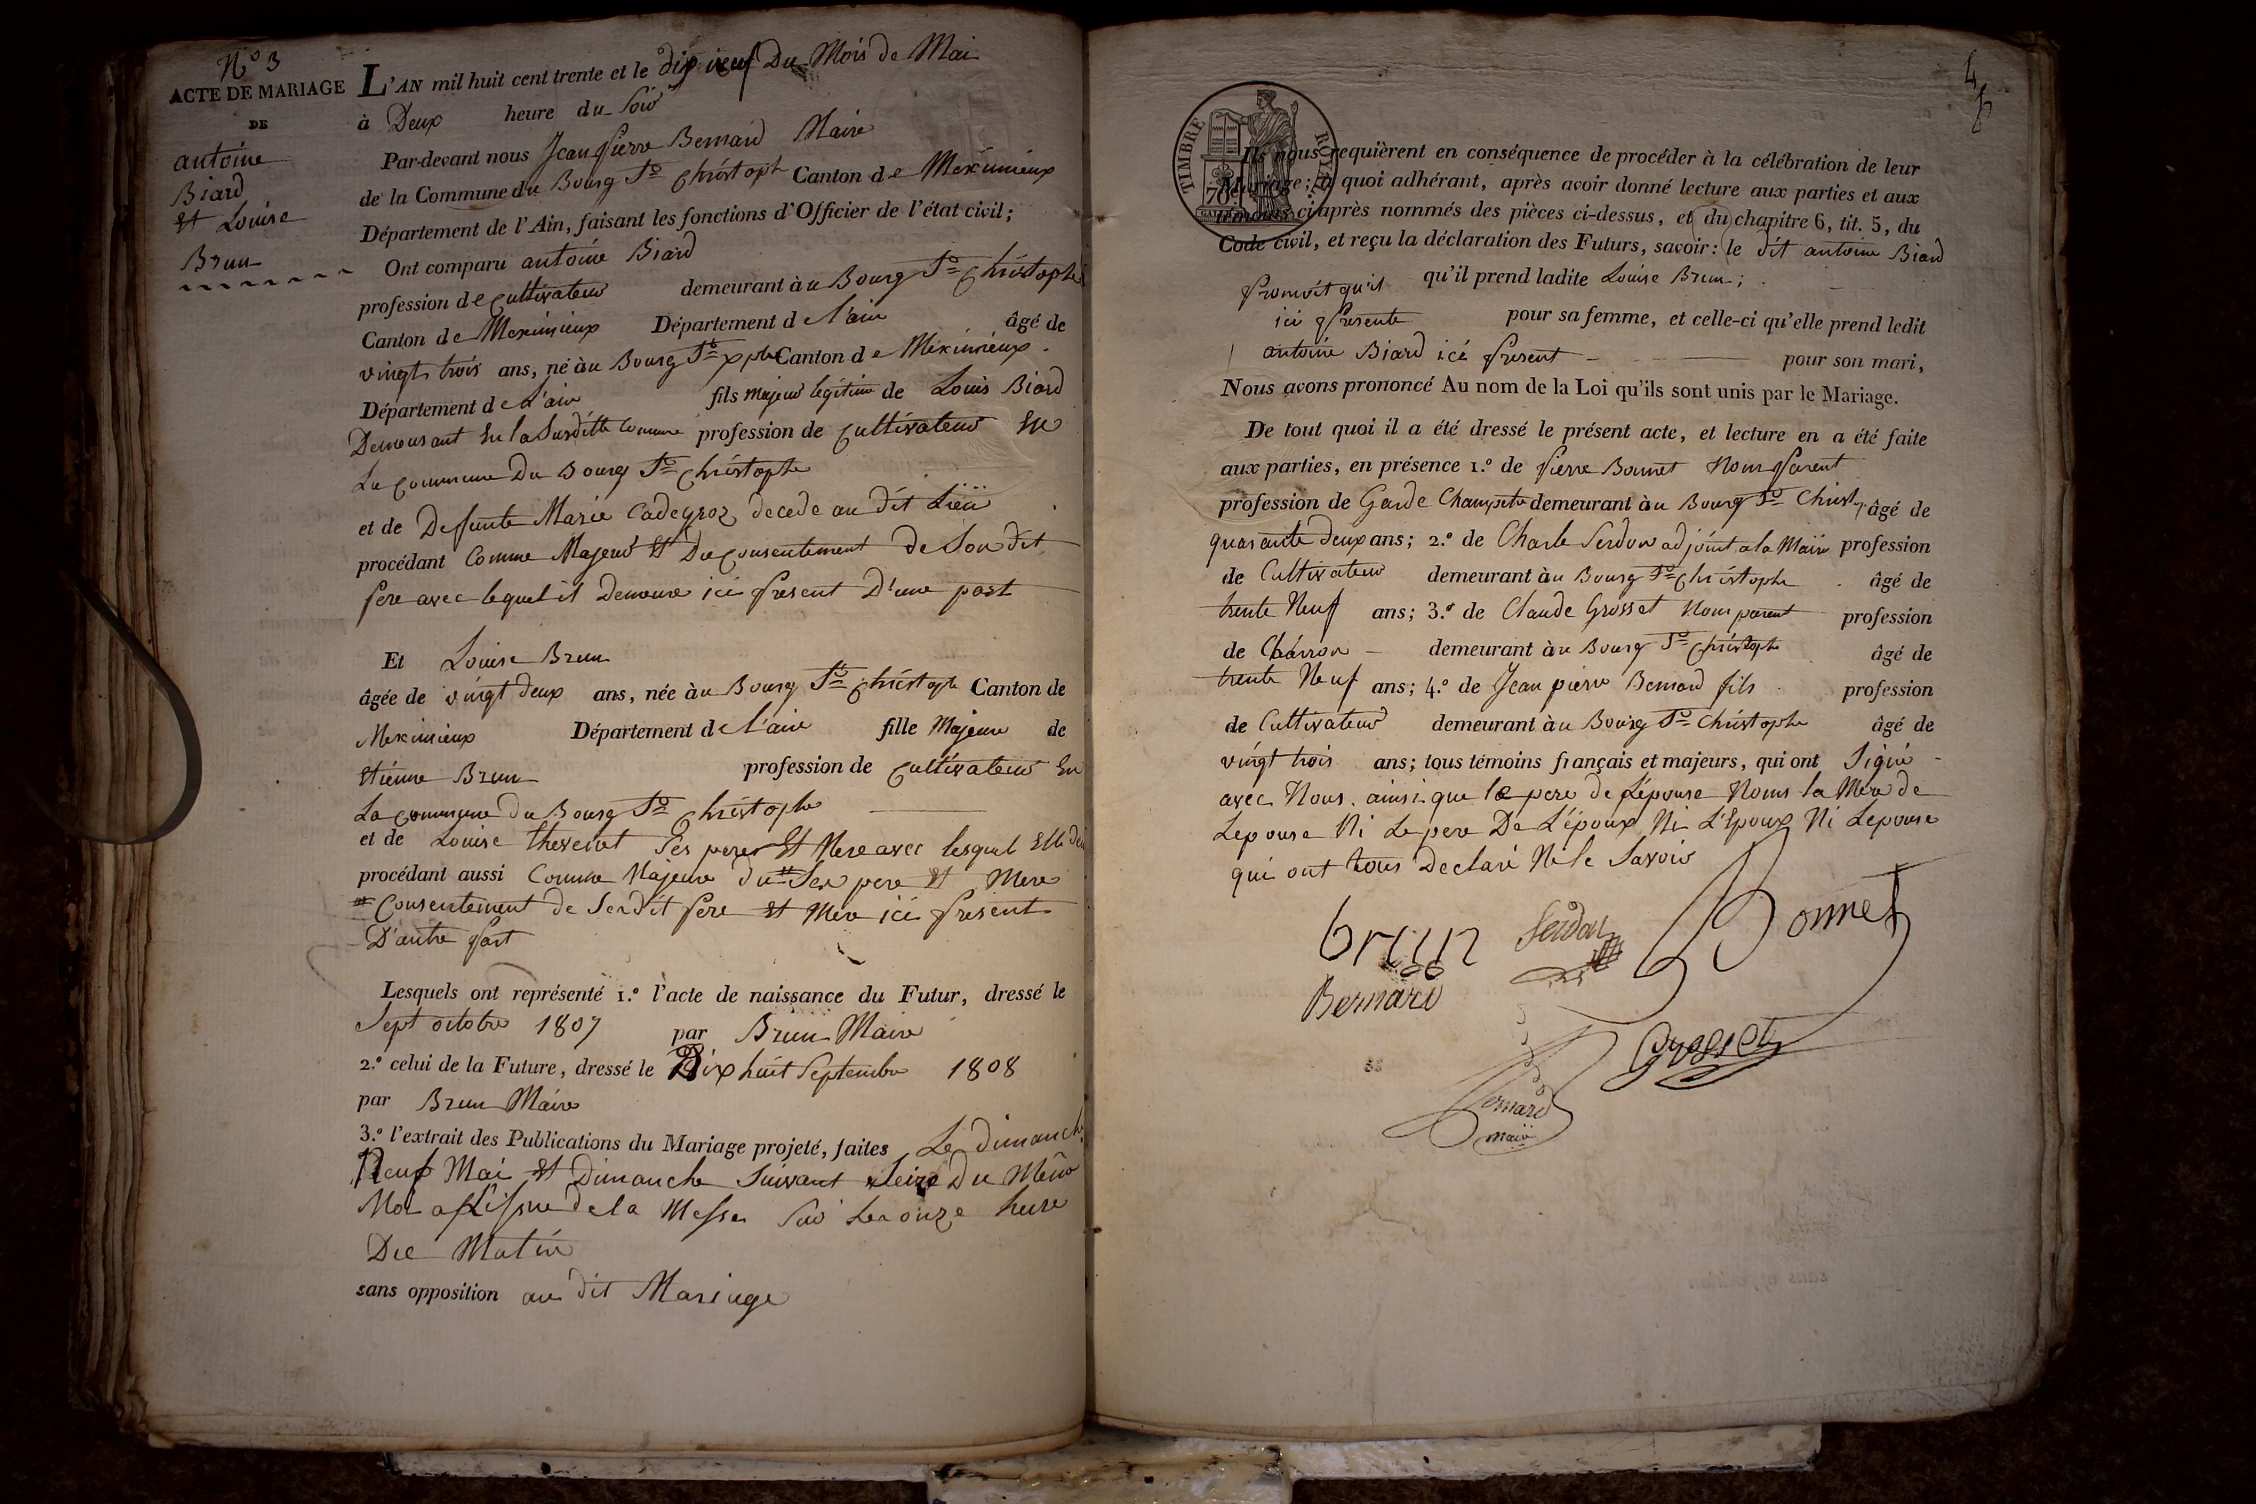 N° 3
ACTE DE MARIAGE
DE
antoine
Biard
Et Louise
Brun
L'AN mil huit cent trente et le dix neuf Du Mois de Mai
à Deux heure du Soir
Par-devant nous Jean pierre Bernard Maire
de la Commune du Bourg St Christoph Canton de Meximieux
Département de l'Ain, faisant les fonctions d'Officier de l'état civil;
Ont comparu antoine Biard
profession de Cultivateur demeurant àu Bourg St Christophe
Canton de Meximieux Département d l'ain âgé de
vingt trois ans, né àu Bourg St xphe Canton de Meximieux
Département de L'ain fils Majeur legitime de Louis Biard
Demeurant En la Susditte Comune profession de Cultivateur En
La Commune Du Bourg St Christophe
et de Defunte Marie Cadegroz decede au dit Lieu
procédant Comme Majeur Et Du Consentement de Son dit
pere avec lequel il Demeure ici present D'une part
Et Louise Brun
âgée de vingt deux ans, née àu Bourg St Christoph Canton de
Meximieux Département d l'ain fille Majeure de
Etienne Brun profession de Cultivateur En
La Commune du Bourg St Christophe
et de Louise thevenot Ses perer Et Mere avec lesquel Elle
procédant aussi Comme Majeure du Ses pere Et Mere
Consentement de Sendit pere Et Mere ici present
D'autre part
Lesquels ont représenté 1.° l'acte de naissance du Futur, dressé le
Sept octobre 1807 par Brun Maire
2.° celui de la Future, dressé le Dix huit Septembre 1808
par Brun Maire
3.° l'extrait des Publications du Mariage projeté, faites Le dimanche
Neuf Mai Et Dimanche Suivant Seize Du Même
Moi a L'issue de la Messe Sur Les onze heure
Du Matin
sans opposition au dit Mariage
4
TIMBRE ROYAL
70
Ils nous requièrent en conséquence de procéder à la célébration de leur
Mariage; à quoi adhérant, après avoir donné lecture aux parties et aux
témoins ci-après nommés des pièces ci-dessus, et du chapitre 6, tit. 5, du
Code civil, et reçu la déclaration des Futurs, savoir: le dit antoine Biard
promet qu'il qu'il prend ladite Louise Brun;
ici present pour sa femme, et celle-ci qu'elle prend ledit
antoine Biard ici present pour son mari,
Nous avons prononcé Au nom de la Loi qu'ils sont unis par le Mariage.
De tout quoi il a été dressé le présent acte, et lecture en a été faite
aux parties, en présence 1.° de pierre Bonnet Non parent
profession de Garde Champetre demeurant àu Bourg St Christ âgé de
quarante deux ans; 2.° de Charle Serdon adjoint a la Mairi profession
de Cultivateur demeurant àu Bourg St Christophe âgé de
trente Neuf ans; 3.° de Claude Grosset Non parent profession
de Charron demeurant àu Bourg St Christophe âgé de
trente Neuf ans; 4.° de Jean pierre Bernard fils profession
de Cultivateur demeurant àu Bourg St Christophe âgé de
vingt trois ans; tous témoins français et majeurs, qui ont Signé
avec Nous ainsi que le pere de L'épouse Nonis la Mere de
Lepouse Ni Le pere De L'époux Ni L'Epoux Ni Lepouse
qui ont tous Declaré Ne le Savoir
brun Serdon Bonnet
Bernard
Grosset
Bernard
maire